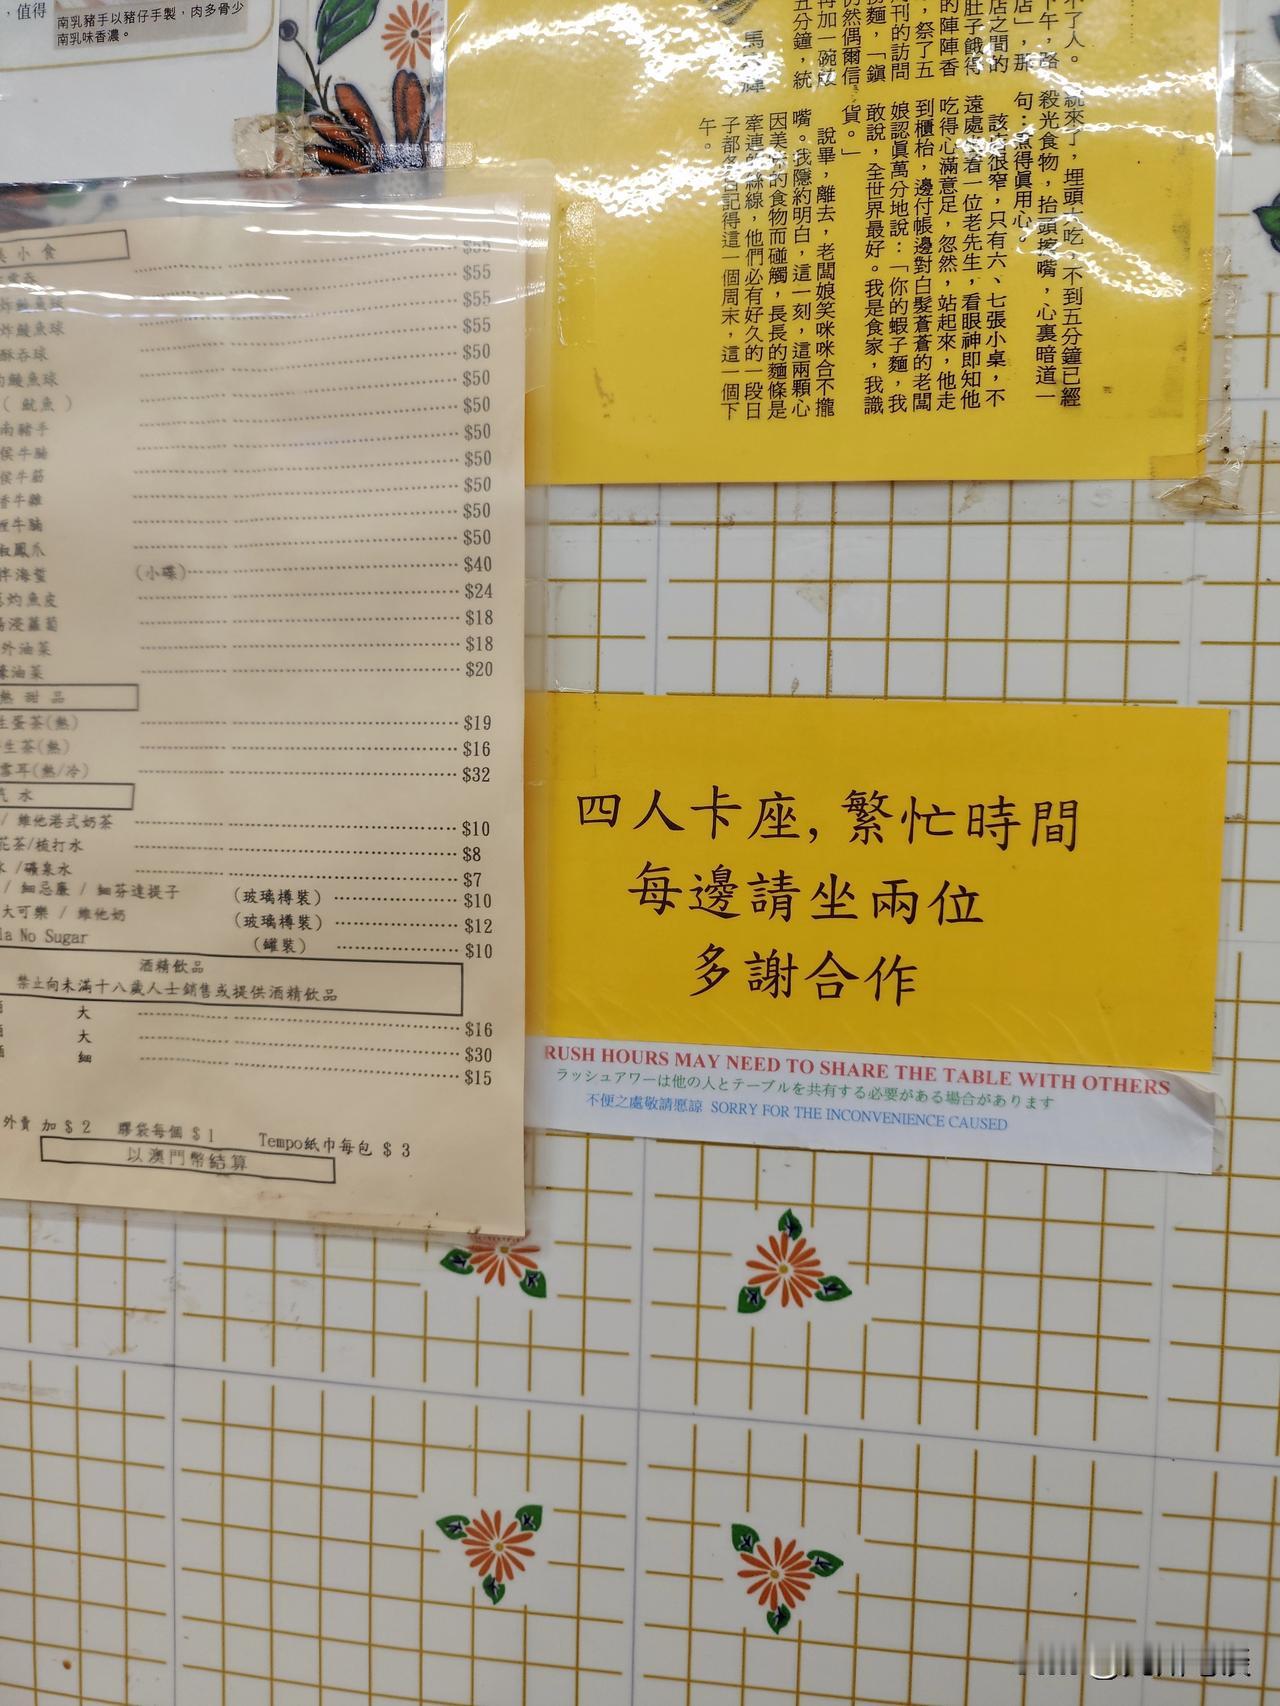 ，值得
南乳豬手以豬仔手製，肉多骨少
南乳味香濃。
小食
$55
$55
炸鯪魚球 $55
炸鯪魚球 $55
酥吞球 $50
鯪魚球 $50
（魷魚） $50
南豬手 $50
侯牛腩 $50
侯牛筋 $50
香牛雜 $50
牛腩 $50
椒鳳爪 $40
拌海蜇 （小碟） $24
灼魚皮 $18
湯浸蘿蔔 $18
外油菜 $20
蠔油菜
熱甜品
生蛋茶(熱) $19
生茶(熱) $16
雪耳(熱/冷) $32
汽水
/ 維他港式奶茶 $10
花茶/梳打水 $8
水 /礦泉水 $7
/ 細忌廉 / 細芬達提子 （玻璃樽裝） $10
大可樂 / 維他奶 （玻璃樽裝） $12
la No Sugar （罐裝） $10
酒精飲品
禁止向未滿十八歲人士銷售或提供酒精飲品
大 $16
大 $30
細 $15
外賣 加 $ 2 膠袋每個 $ 1 Tempo紙巾每包 $ 3
以澳門幣結算
不了人。
下午，路
店」，那
店之間的
肚子餓得
的陣陣香
，祭了五
周刊的訪問
撈麵，「鎮
仍然偶爾信
再加一碗
五分鐘，統
馬
統來了，埋頭大吃，不到五分鐘已經
殺光食物，抬頭擦嘴，心裏暗道一
句：煮得真用心。
該店很窄，只有六、七張小桌，不
遠處坐着一位老先生，看眼神即知他
吃得心滿意足，忽然，站起來，他走
到櫃枱，邊付帳邊對白髮蒼蒼的老闆
娘認真萬分地說：「你的蝦子麵，我
敢說，全世界最好。我是食家，我識
貨。」
說畢，離去，老闆娘笑咪咪合不攏
嘴。我隱約明白，這一刻，這兩顆心
因美味的食物而碰觸，長長的麵條是
牽連的絲線，他們必有好久的一段日
子都各自記得這一個周末，這一個下
午。
四人卡座，繁忙時間
每邊請坐兩位
多謝合作
RUSH HOURS MAY NEED TO SHARE THE TABLE WITH OTHERS
ラッシュアワーは他の人とテーブルを共有する必要がある場合があります
不便之處敬請愿諒 SORRY FOR THE INCONVENIENCE CAUSED